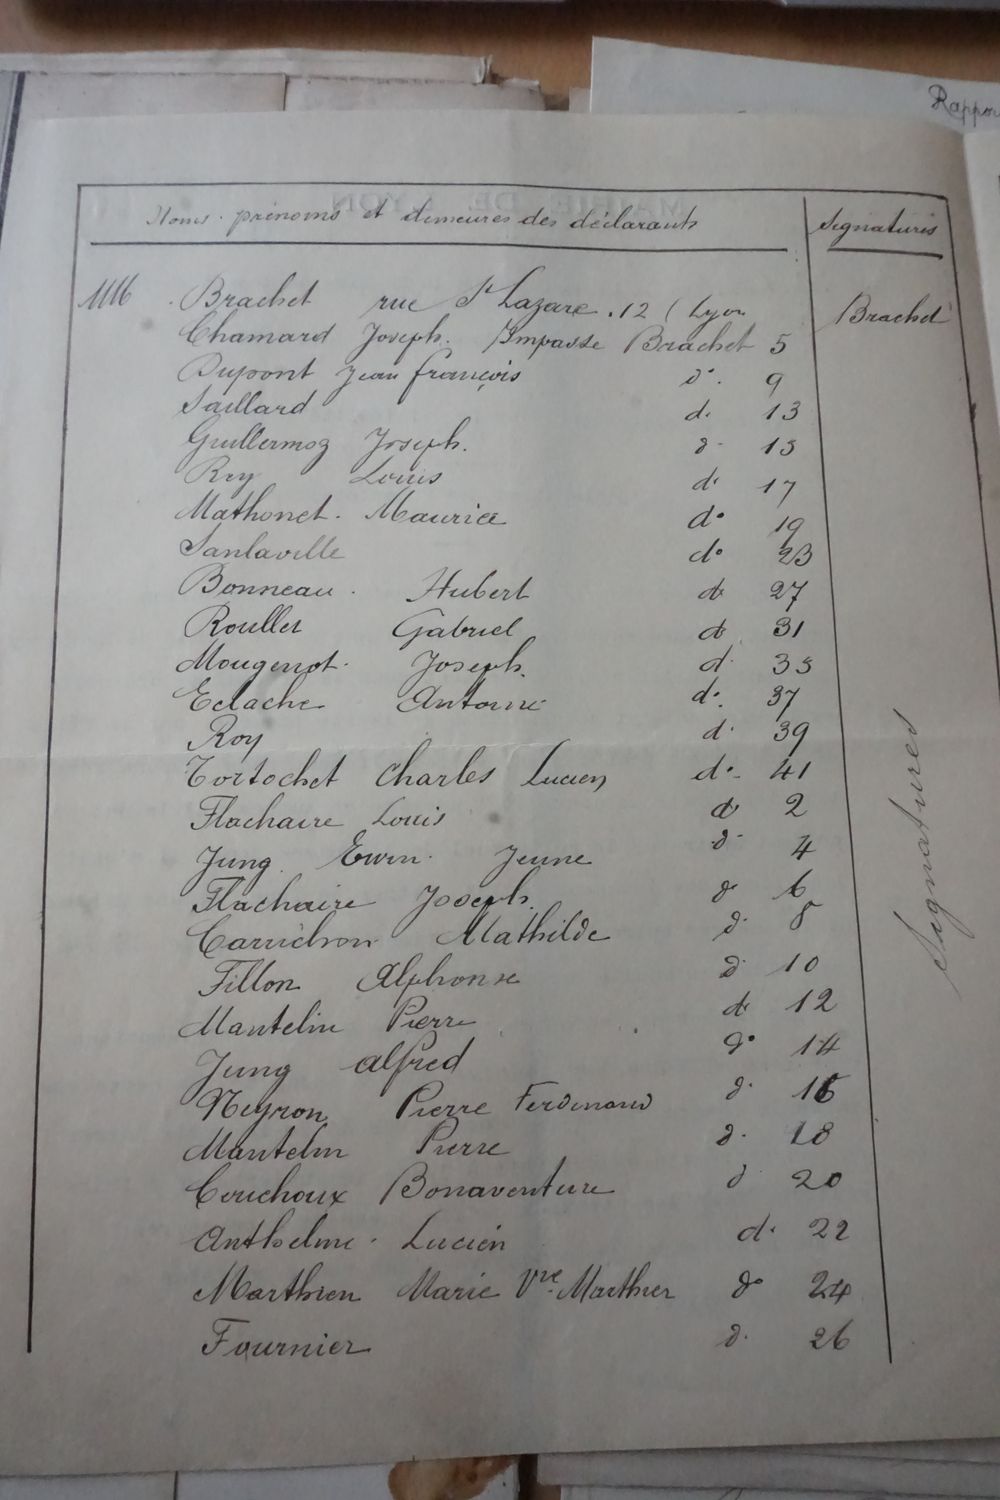 Rappor
Noms prénoms et demeures des déclarants Signatures
1116 Brachet rue St Lazare 12 (Lyon Brachet
Chamard Joseph. Impasse Brachet 5
Dupont Jean françois do. 9
Saillard do 13
Guillermoz Joseph. do 15
Rey Louis do 17
Mathonet. Maurice do 19
Sanlaville do 23
Bonneau. Hubert do 27
Roullet Gabriel do 31
Mougenot. Joseph. do 35
Eclache Antoine do. 37
Roy do 39
Tortochet Charles Lucien do 41
Flachaire Louis do 2
Jung. Erwin. Jeune do 4
Flachaire Joseph. do 6
Carrichon Mathilde do 8
Fillon Alphonse do 10
Mantelin Pierre do 12
Jung Alfred do 14
Neyron Pierre Ferdinand do 16
Mantelin Pierre do 18
Couchoux Bonaventure do 20
Anthelme. Lucien do 22
Marthien Marie Vve Marthien do 24
Fournier do 26
Signatures